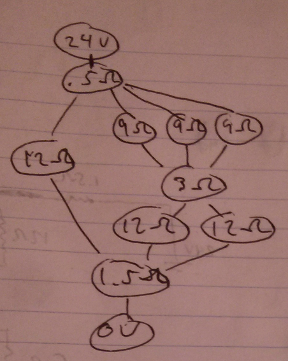 24V
.5Ω
9Ω 9Ω 9Ω
12Ω
3Ω
12Ω 12Ω
1.5Ω
0V